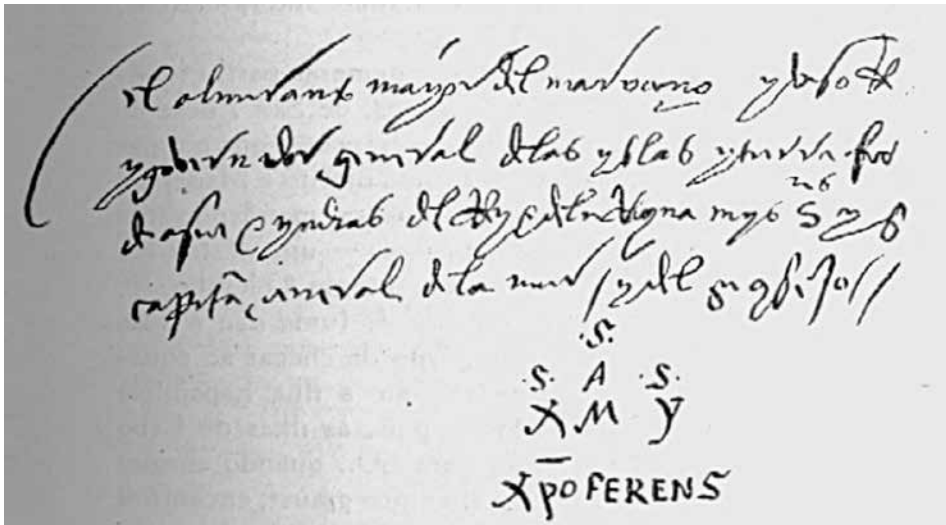 el almirante mayor del mar oceano y viso Rey
y governador general de las yslas y tierra firme
de asia e yndias del Rey e de la Reyna mys Sres y su
capitan general de la mar y del su consejo
.S.
.S. A .S.
X M Y
Xpo FERENS